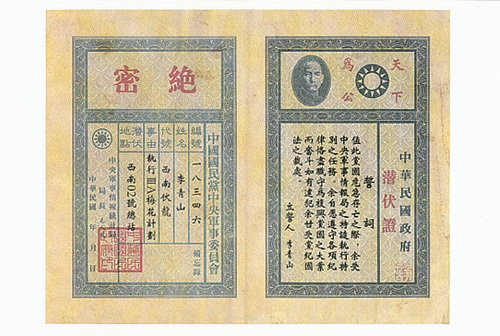 天下
為公
中華民國政府
潛伏證
誓詞
值此黨國危急存亡之際,余受
中央軍事情報局之特 執行特
別之任務,余自愿遵守各項紀
律恪盡職守為復興黨國之大業
而奮斗如有違犯余甘受黨紀國
法之裁處。
立誓人 李青山
絶密
中國國民黨中央軍事委員會
備忘錄
編號 一八三四六
姓名 李青山
代號 西南伏龍
事由 執行 A梅花計劃
潛伏地點 西南02號總站
中央軍事情報
局長
中華民國 年 月 日